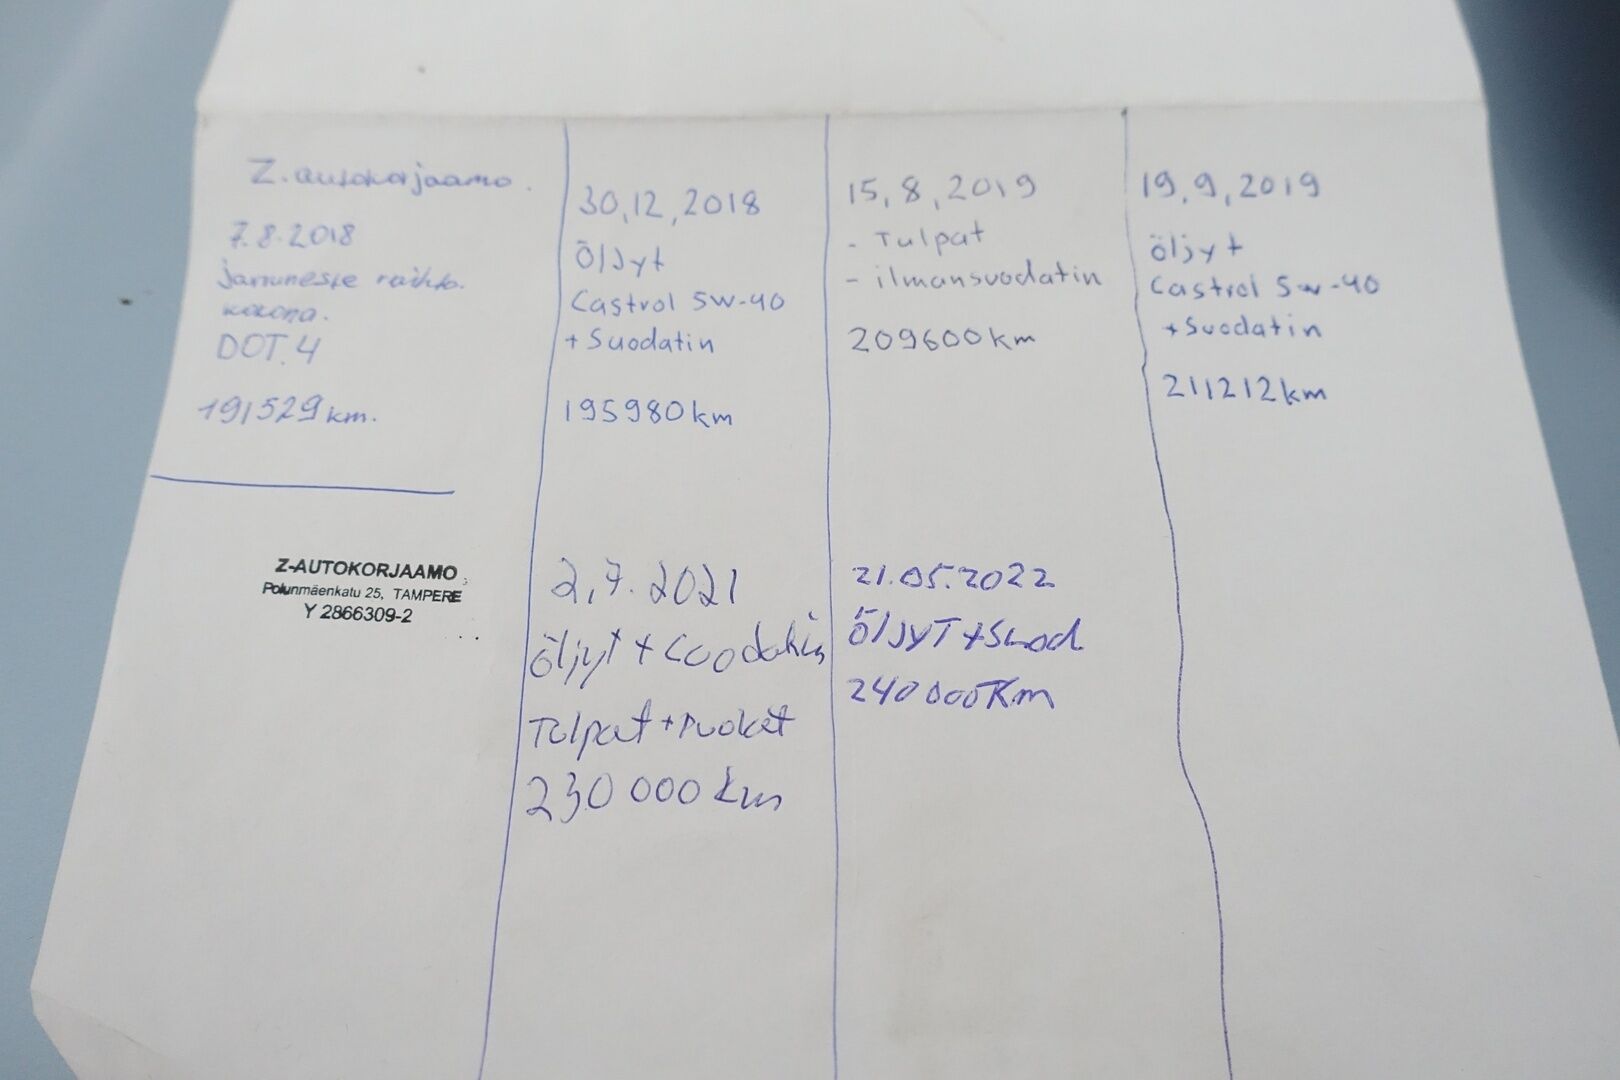 Z.autokorjaamo.
7.8.2018
jarruneste vaihto.
DOT.4
191529 km.
Z-AUTOKORJAAMO
Polunmäenkatu 25, TAMPERE
Y 2866309-2
30,12,2018
Öljyt
Castrol 5W-40
+ Suodatin
195980 km
2,7.2021
Öljyt + Suodatin
Tulpat + Puolat
230 000 km
15,8,2019
- Tulpat
- ilmansuodatin
209600 km
21.05.2022
ÖljyT + Suod
240 000 Km
19,9,2019
öljyt
Castrol 5w-40
+ Suodatin
211212 km